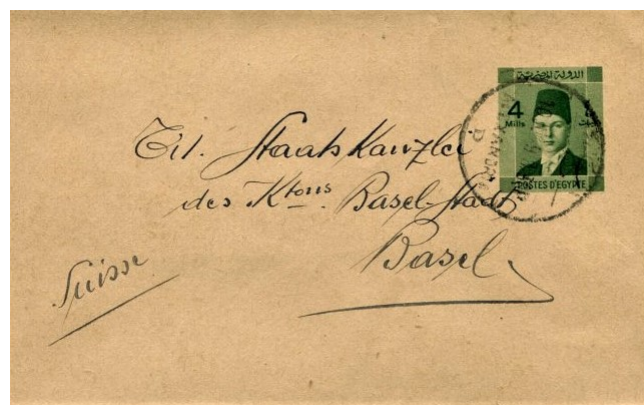 الدولة المصرية
4
Mills
POSTES D'EGYPTE
ALEXANDR
D
Tit. Staatskanzlei
des Ktons. Basel-Stadt
Basel
Suisse